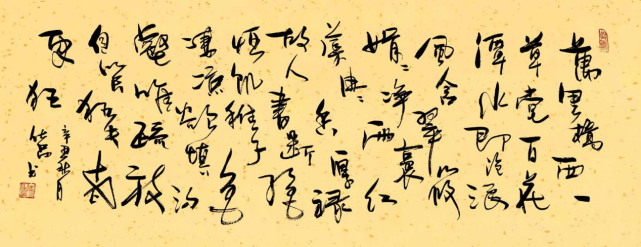 萬里橋西一
草堂百花
潭水即滄浪
風含翠篠
娟娟淨雨裛红
蕖冉冉香厚禄
故人書斷絶
恒飢稚子色
凄凉欲填溝
壑唯疏放
自笑狂夫老
更狂
辛丑秋月
书